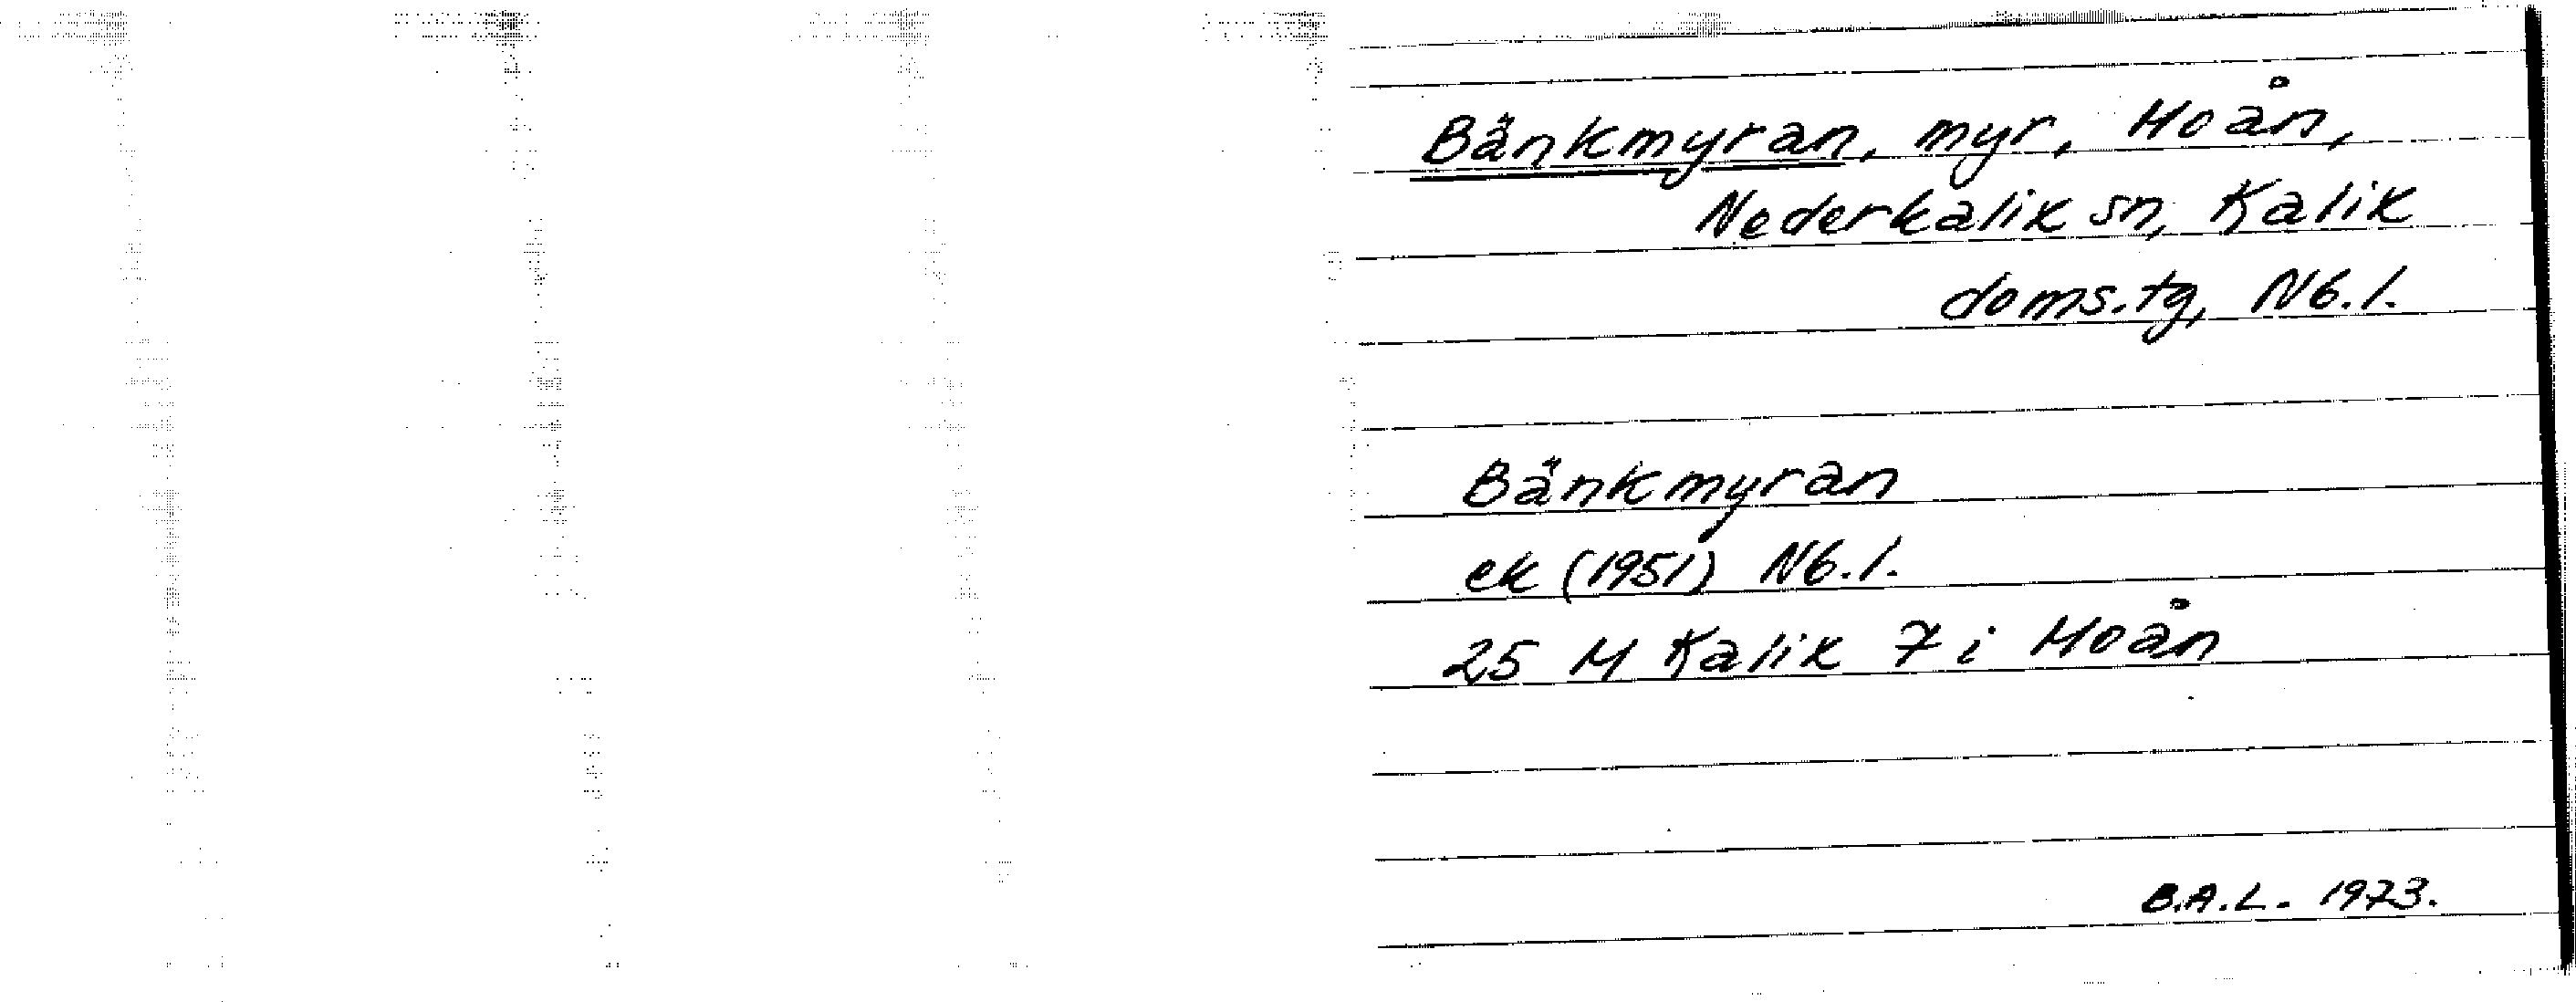 Bänkmyran, myr, Moån,
Nederkalix sn, Kalix
doms.tg, Nb.l.
Bänkmyran
ek (1951) Nb.l.
25 M Kalix 7 i Moån
B.A.L. 1973.